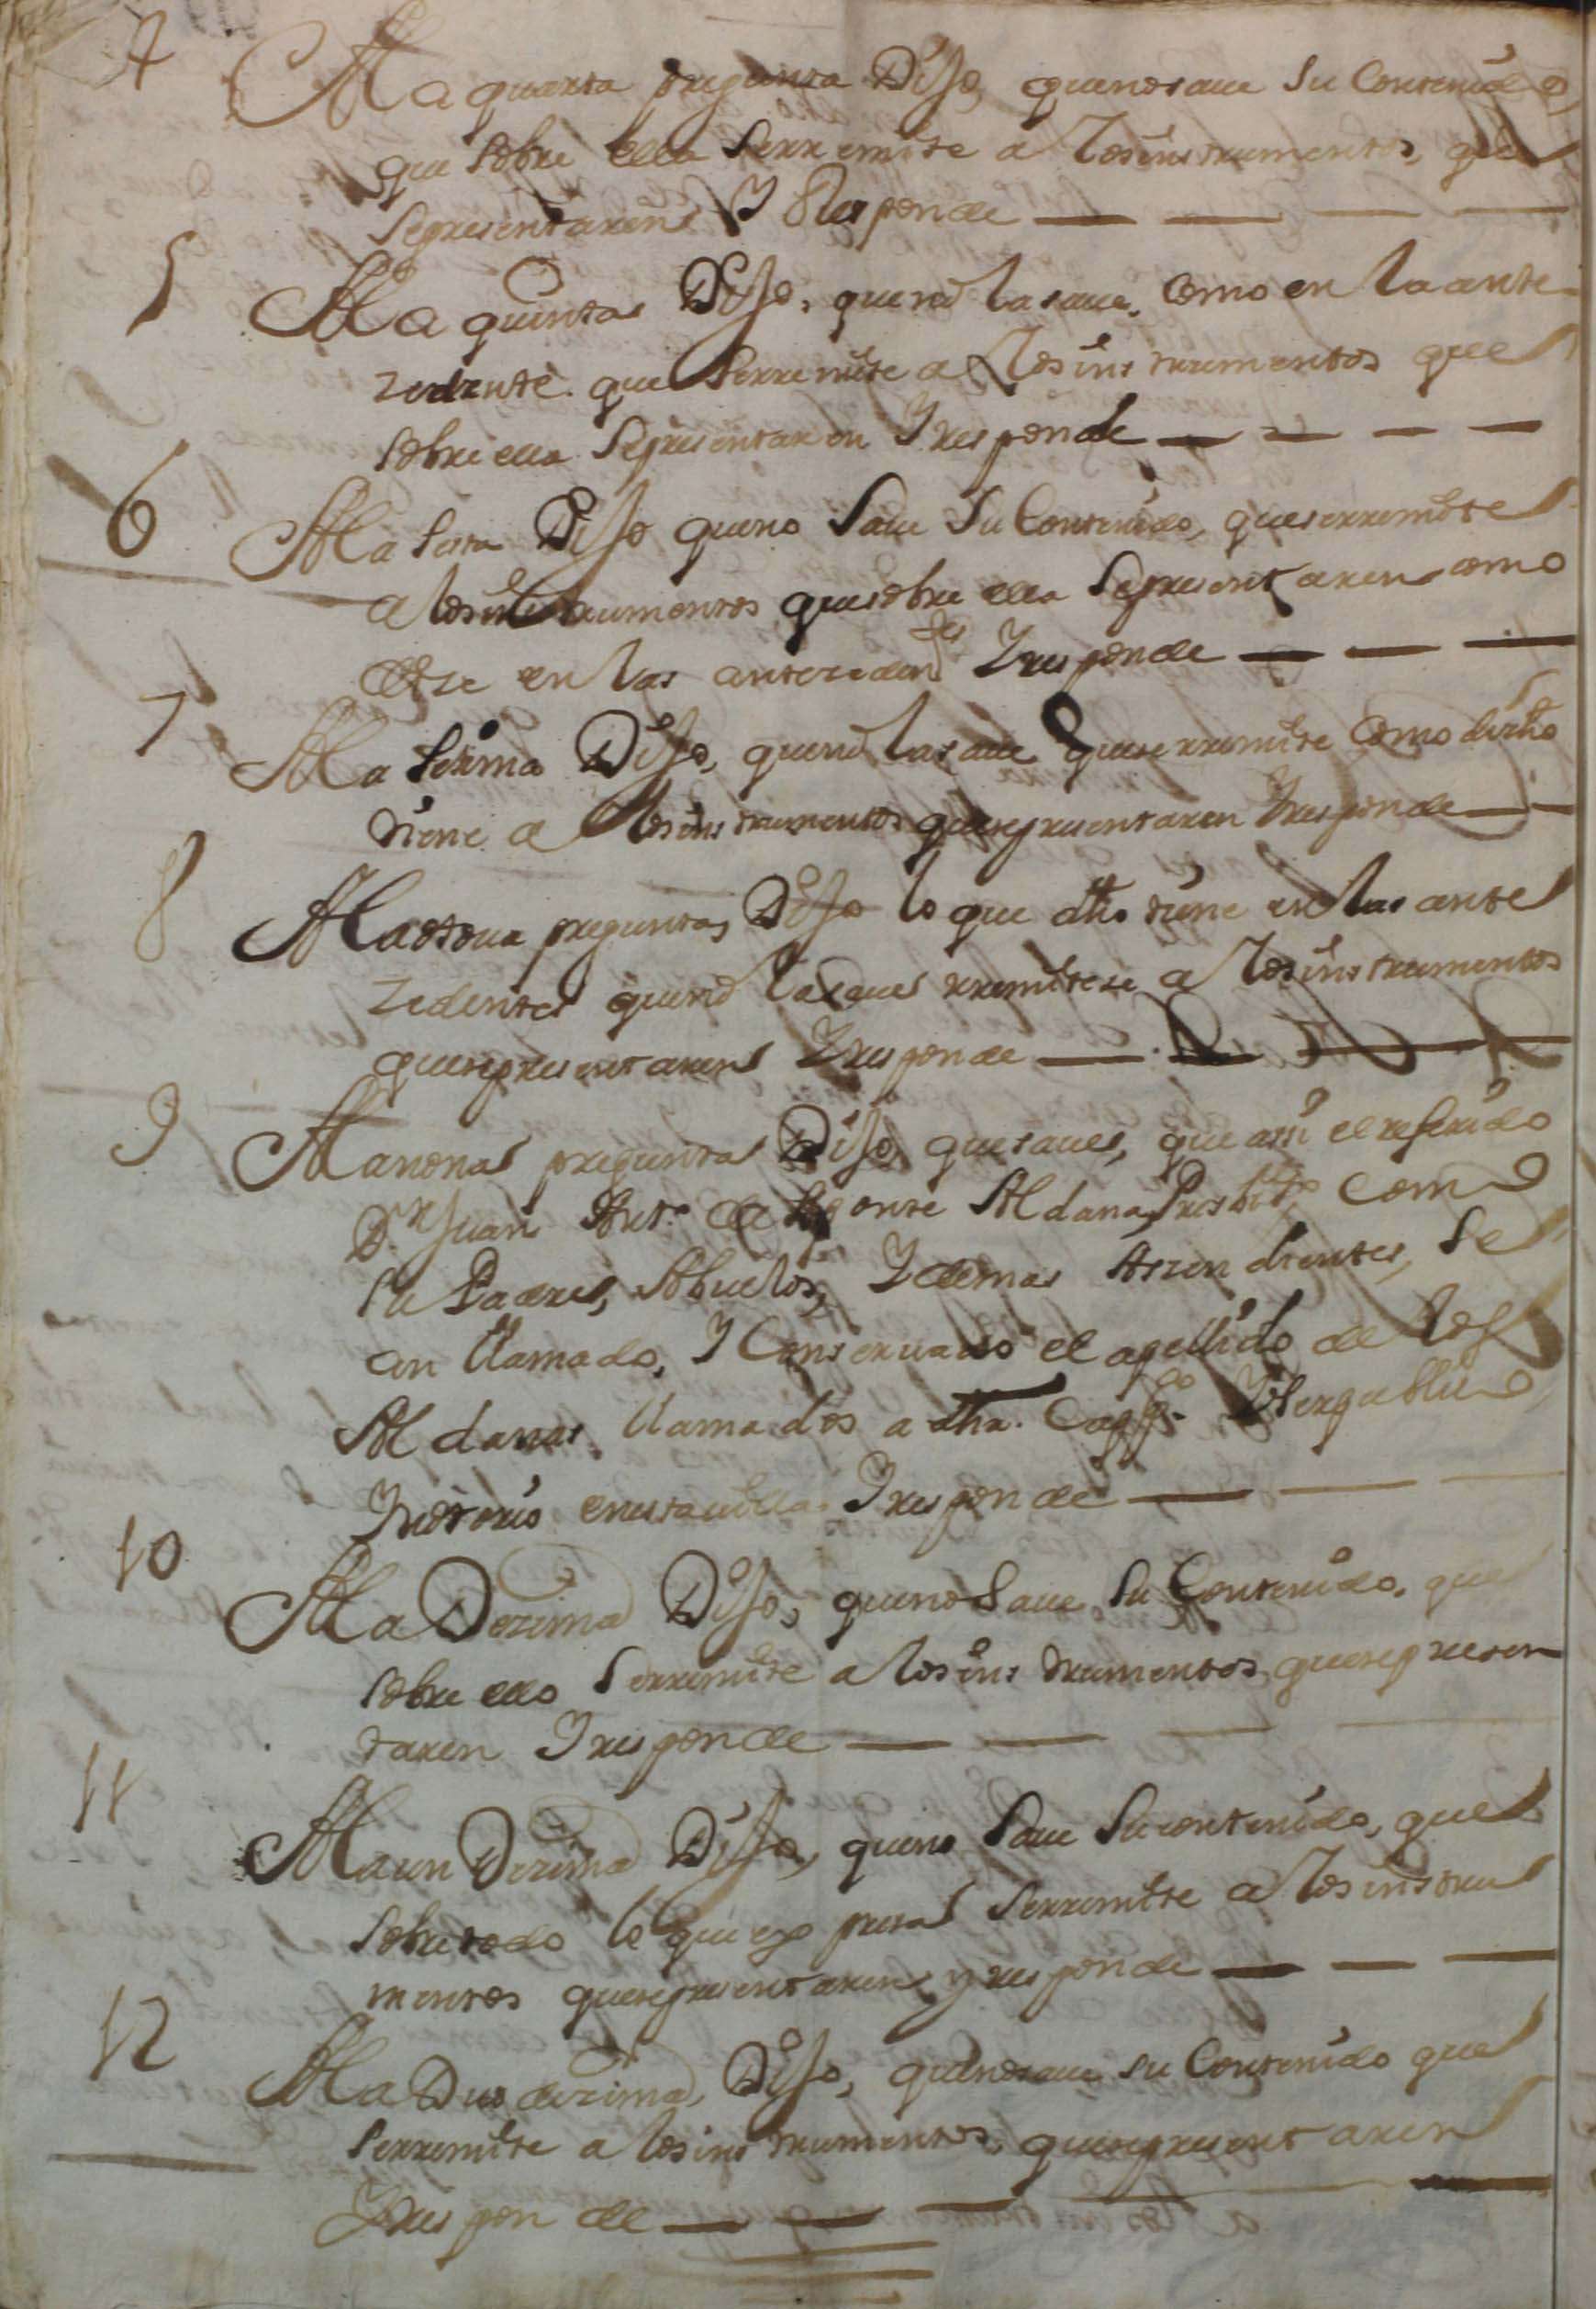 4 A la quarta pregunta Dijo, quenosaue Su Contenido,
que sobre ella Serremite a los instrumentos, que
Sepresentaren Y Responde
5 A la quinta Dijo, queno lasaue, Como en la ante
zedente que Serremite a los instrumentos que
sobre ella Sepresentaren Y responde
6 A la sesta Dijo queno Saue Su Contenido, queserremite
a los instrumentos, quesobre ella Sepresentaren como
dize en las antezedentes Y responde
7 A la setima Dijo, queno lasaue queserremite Como dicho
tiene a los instrumentos quesepresentaren Y responde
8 A la otaua pregunta, Dijo lo que dho tiene en las ante
zedentes queno lasaue rremitese a los instrumentos
quesepresentaren Y responde
9 A la nona pregunta Dijo, quesaue, que asi el referido
Dn Juan Antº de Aponte Aldana, Presbitº Como
Su Padres, Abuelos, Y demas Aszendientes, Se
an llamado, Y Conseruado el apellido de los
Aldanas llamados a dha. Capp. Y es publico
Y notorio enestauilla Y responde
10 A la Dezima Dijo, queno Saue Su Contenido, que
Sobre ello Serremite a los instrumentos, quesepresen
taren Y responde
11 A la un Dezima Dijo, queno Saue Su contenido, que
Sobre todo lo que expresa Serremite a los instru
mentos quesepresentaren y responde
12 A la Duo dezima, Dijo, quenosaue Su Contenido que
Serremite a los instrumentos, quesepresentaren
Y responde